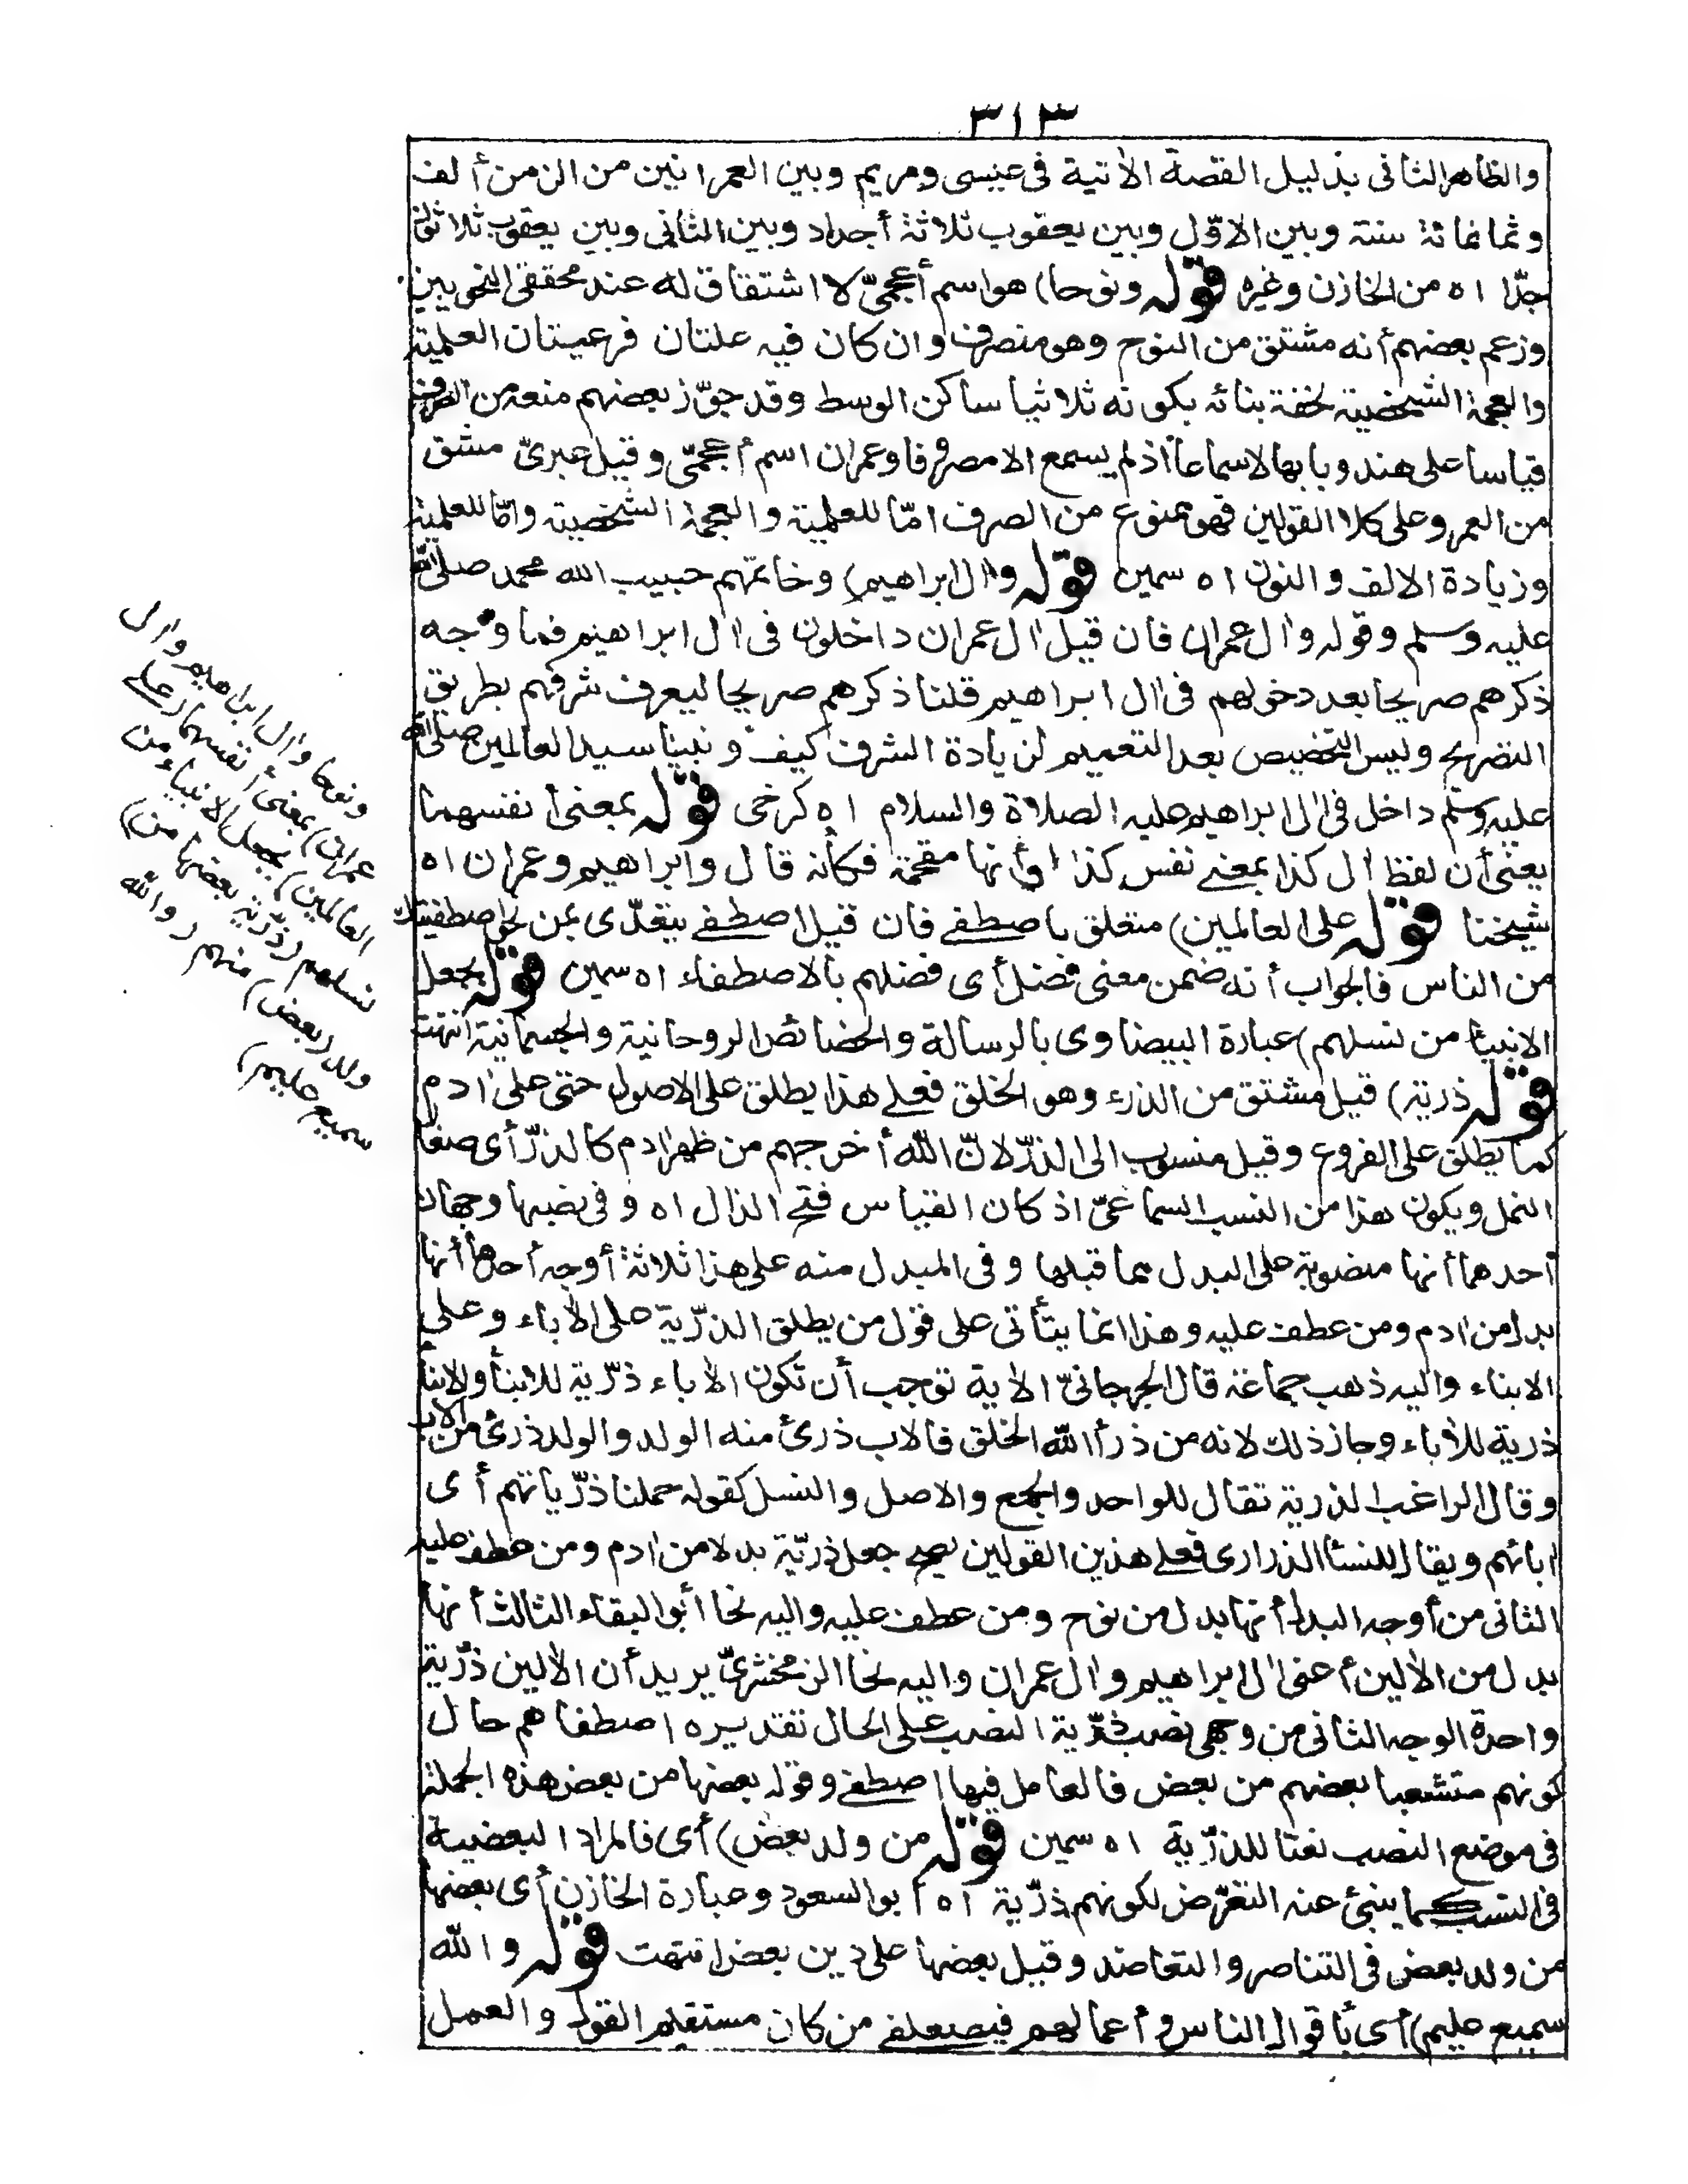 ٣١٣
والظاهر الثانى بدليل القصة الاٰتية فى عيسى ومريم وبين العمرانين من الزمن ألف
وثمانمائة سنة وبين الاوّل وبين يعقوب ثلاثة أجداد وبين الثانى وبين يعقوب ثلاثون
جدّا اه من الخازن وغيره قوله ونوحا) هو اسم أعجمىّ لا اشتقاق له عند محققى النحويين
وزعم بعضهم أنه مشتق من النوح وهو منصرف وان كان فيه علتان فرعيتان العلمية
والعجمة الشخصية لخفة بنائه بكونه ثلاثيا ساكن الوسط وقد جوّز بعضهم منعه من الصرف
قياسا على هند وبابها لا سماعا اذ لم يسمع الا مصروفا وعمران اسم أعجمّى وقيل عبرىّ مشتق
من العمر وعلى كلا القولين فهو ممنوع من الصرف امّا للعلمية والعجمة الشخصية وامّا للعلمية
وزيادة الالف والنون اه سمين قوله واٰل ابراهيم) وخاتمتهم حبيب الله محمد صلى الله
عليه وسلم وقوله واٰل عمران فان قيل اٰل عمران داخلون فى اٰل ابراهيم فما وجه
ذكرهم صريحا بعد دخولهم فى اٰل ابراهيم قلنا ذكرهم صريحا ليعرف شرفهم بطريق
التصريح وليس التخصيص بعد التعميم لزيادة الشرف كيف ونبينا سيد العالمين صلى الله
عليه وسلم داخل فى اٰل ابراهيم عليه الصلاة والسلام اه كرخى قوله بمعنى أنفسهما
يعنى أن لفظ اٰل كذا بمعنى نفس كذا أو أنها مقحمة فكأنه قال وابراهيم وعمران اه
شيخنا قوله على العالمين) متعلق باصطفى فان قيل اصطفى يتعدّى بمن نحو اصطفيتك
من الناس فالجواب أنه ضمن معنى فضل أى فضلهم بالاصطفاء اه سمين قوله بجعل
الانبياء من نسلهم) عبارة البيضاوى بالرسالة والخصائص الروحانية والجسمانية انتهت
قوله ذرية) قيل مشتق من الذرء وهو الخلق فعلى هذا يطلق على الاصول حتى على اٰدم
كما يطلق على الفروع وقيل منسوب الى الذرّ لانّ الله أخرجهم من ظهر اٰدم كالذرّ أى صغار
النمل ويكون هذا من النسب السماعىّ اذ كان القياس فتح الذال اه وفى نصبها وجهان
أحدهما أنها منصوبة على البدل مما قبلها وفى المبدل منه على هذا ثلاثة أوجه أحدها أنها
بدل من اٰدم ومن عطف عليه وهذا انما يتأتى على قول من يطلق الذرّية على الاٰباء وعلى
الابناء واليه ذهب جماعة قال الجرجانىّ الاٰية توجب أن تكون الاٰباء ذرّية للابناء والابناء
ذرية للاٰباء وجاز ذلك لانه من ذرأ الله الخلق فالاب ذرئ منه الولد والولد ذرئ من الاب
وقال الراغب الذرية تقال للواحد والجمع والاصل والنسل كقوله حملنا ذرّياتهم أى
اٰبائهم ويقال للنساء الذرارى فعلى هذين القولين يصح جعل ذرّيّة بدلا من اٰدم ومن عطف عليه
الثانى من أوجه البدل أنها بدل من نوح ومن عطف عليه واليه نحا أبو البقاء الثالث أنها
بدل من الاٰلين أعنى اٰل ابراهيم واٰل عمران واليه نحا الزمخشرىّ يريد أن الاٰلين ذرّية
واحدة الوجه الثانى من وجهى نصب ذرّية النصب على الحال تقديره اصطفاهم حال
كونهم متشعبا بعضهم من بعض فالعامل فيها اصطفى وقوله بعضها من بعض هذه الجملة
فى موضع النصب نعتا للذرّية اه سمين قوله من ولد بعض) أى فالمراد البعضية
فى النسب كما ينبئ عنه التعرّض لكونهم ذرّية اه أبو السعود وعبارة الخازن أى بعضها
من ولد بعض فى التناصر والتعاضد وقيل بعضها على دين بعض انتهت قوله والله
سميع عليم) أى بأقوال الناس وأعمالهم فيصطفى من كان مستقيم القول والعمل
ونوحا واٰل ابراهيم واٰل
عمران) بمعنى أنفسهما (على
العالمين) بجعل الانبياء من
نسلهم (ذرّية بعضها من)
ولد (بعض) منهم (والله
سميع عليم)